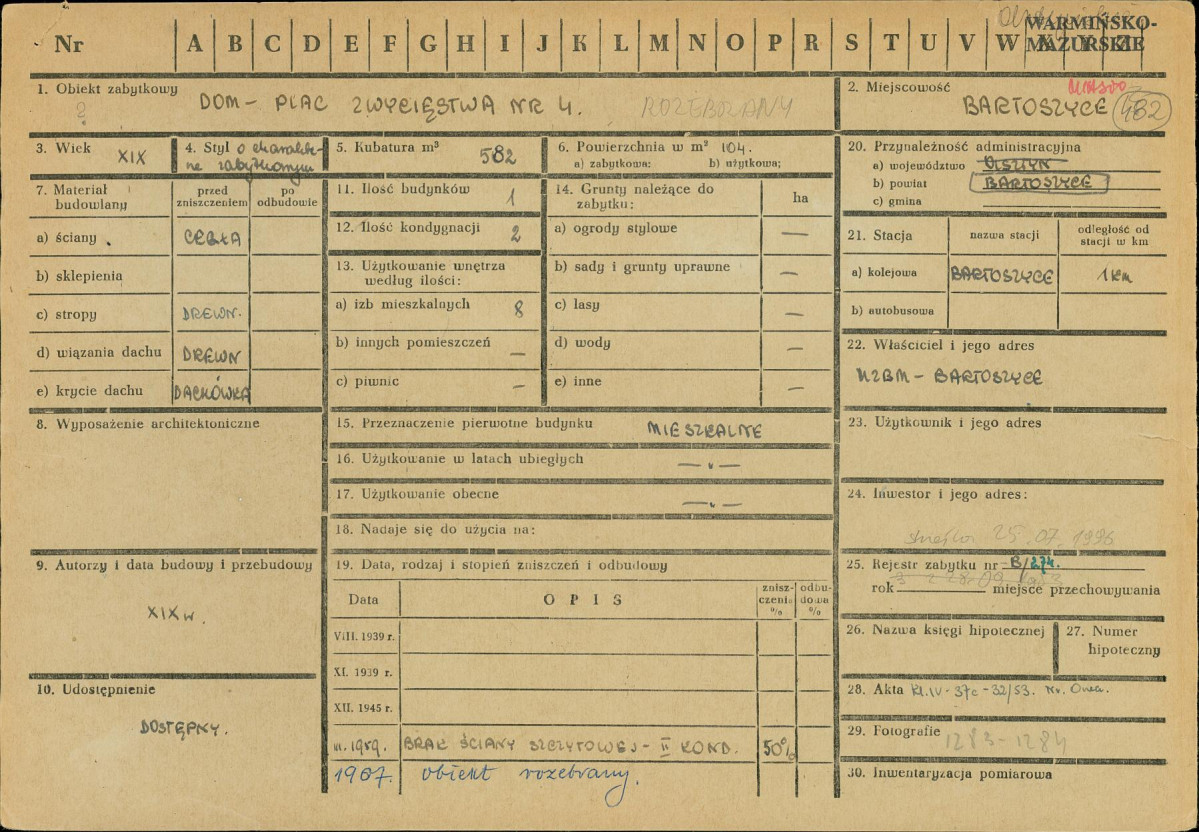 Nr A B C D E F G H I J K L M N O P R S T U V W X Y Z
WARMIŃSKO-
MAZURSKIE
1. Obiekt zabytkowy
?
DOM – PLAC ZWYCIĘSTWA NR 4. ROZEBRANY
2. Miejscowość
miasto
BARTOSZYCE 482
3. Wiek XIX
4. Styl o charakte-
rze zabytkowym
5. Kubatura m³ 582
6. Powierzchnia w m² 104.
a) zabytkowa; b) użytkowa;
7. Materiał budowlany
przed zniszczeniem
po odbudowie
a) ściany CEGŁA
b) sklepienia
c) stropy DREWN.
d) wiązania dachu DREWN
e) krycie dachu DACHÓWKA
8. Wyposażenie architektoniczne
9. Autorzy i data budowy i przebudowy
XIX w.
10. Udostępnienie
DOSTĘPNY.
11. Ilość budynków 1
12. Ilość kondygnacji 2
13. Użytkowanie wnętrza
według ilości:
a) izb mieszkalnych 8
b) innych pomieszczeń –
c) piwnic –
14. Grunty należące do
zabytku: ha
a) ogrody stylowe –
b) sady i grunty uprawne –
c) lasy –
d) wody –
e) inne –
15. Przeznaczenie pierwotne budynku MIESZKALNE
16. Użytkowanie w latach ubiegłych – „ –
17. Użytkowanie obecne – „ –
18. Nadaje się do użycia na:
19. Data, rodzaj i stopień zniszczeń i odbudowy
Data OPIS
znisz-
czenia
%
odbu-
dowa
%
VIII. 1939 r.
XI. 1939 r.
XII. 1945 r.
III. 1959. BRAK ŚCIANY SZCZYTOWEJ – II KOND. 50%
1967. obiekt rozebrany.
20. Przynależność administracyjna
a) województwo OLSZTYN
b) powiat BARTOSZYCE
c) gmina
21. Stacja
nazwa stacji
odległość od
stacji w km
a) kolejowa BARTOSZYCE 1 km
b) autobusowa
22. Właściciel i jego adres
MZBM – BARTOSZYCE
23. Użytkownik i jego adres
24. Inwestor i jego adres:
25.07.1996
25. Rejestr zabytku nr B/274.
rok miejsce przechowywania
26. Nazwa księgi hipotecznej
27. Numer
hipoteczny
28. Akta Kl.IV-37c-32/53.
29. Fotografie 1283-1284
30. Inwentaryzacja pomiarowa